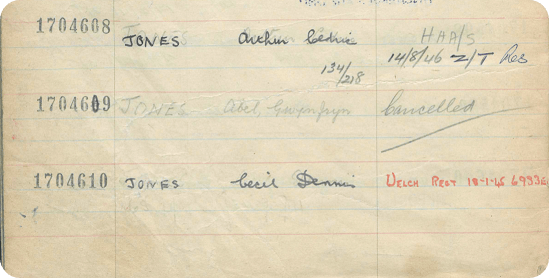 HAA/S
1704608 JONES Arthur Cedric 14/8/46 Z/T Res
134/218
1704609 JONES Abel, Gwynfryn Cancelled
1704610 JONES Cecil Dennis WELCH REGT 18-1-45 6933E